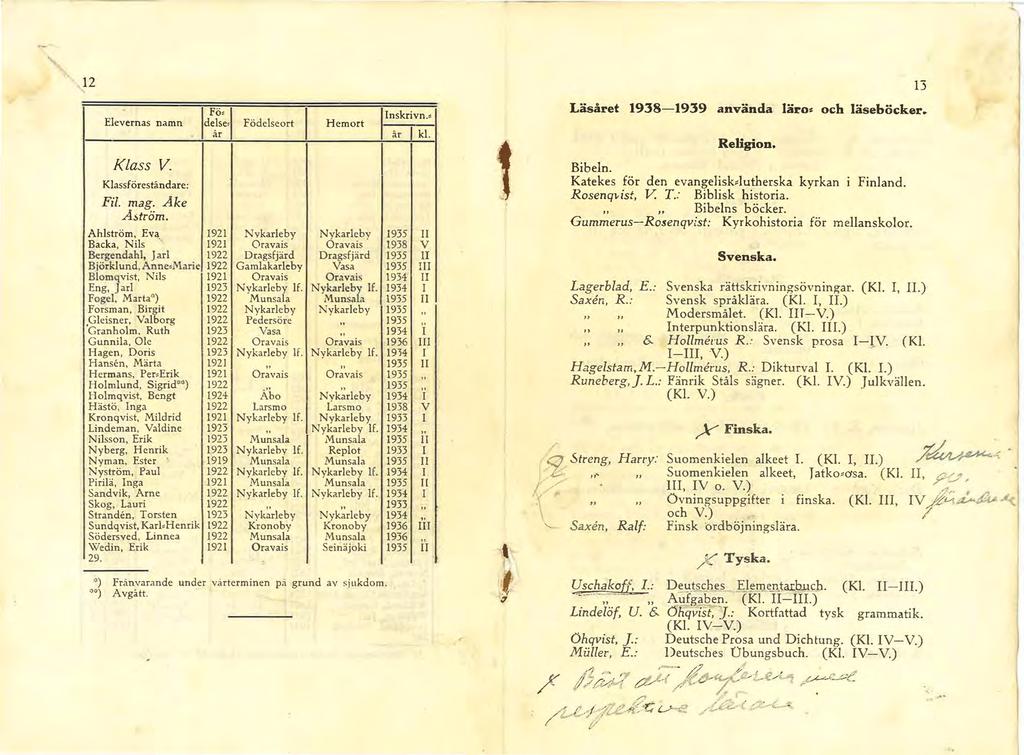 12
Elevernas namn | Fö⸗delse⸗år | Födelseort | Hemort | Inskrivn.⸗ år | kl.
Klass V.
Klassföreståndare:
Fil. mag. Åke
Åström.
Ahlström, Eva 1921 Nykarleby Nykarleby 1935 II
Backa, Nils 1921 Oravais Oravais 1938 V
Bergendahl, Jarl 1922 Dragsfjärd Dragsfjärd 1935 II
Björklund, Anne⸗Marie 1922 Gamlakarleby Vasa 1935 III
Blomqvist, Nils 1921 Oravais Oravais 1934 II
Eng, Jarl 1923 Nykarleby lf. Nykarleby lf. 1934 I
Fogel, Marta°) 1922 Munsala Munsala 1935 II
Forsman, Birgit 1922 Nykarleby Nykarleby 1935 „
Gleisner, Valborg 1922 Pedersöre „ 1935 „
Granholm, Ruth 1923 Vasa „ 1934 I
Gunnila, Ole 1922 Oravais Oravais 1936 III
Hagen, Doris 1923 Nykarleby lf. Nykarleby lf. 1934 I
Hansén, Märta 1921 „ „ 1935 II
Hermans, Per⸗Erik 1921 Oravais Oravais 1935 „
Holmlund, Sigrid°°) 1922 „ „ 1935 „
Holmqvist, Bengt 1924 Åbo Nykarleby 1934 I
Hästö, Inga 1922 Larsmo Larsmo 1938 V
Kronqvist, Mildrid 1921 Nykarleby lf. Nykarleby 1933 I
Lindeman, Valdine 1923 „ Nykarleby lf. 1934 „
Nilsson, Erik 1923 Munsala Munsala 1935 II
Nyberg, Henrik 1923 Nykarleby lf. Replot 1933 I
Nyman, Ester 1919 Munsala Munsala 1935 II
Nyström, Paul 1922 Nykarleby lf. Nykarleby lf. 1934 I
Pirilä, Inga 1921 Munsala Munsala 1935 II
Sandvik, Arne 1922 Nykarleby lf. Nykarleby lf. 1934 I
Skog, Lauri 1922 „ „ 1933 „
Strandén, Torsten 1923 Nykarleby Nykarleby 1934 „
Sundqvist, Karl⸗Henrik 1922 Kronoby Kronoby 1936 III
Södersved, Linnea 1922 Munsala Munsala 1936 „
Wedin, Erik 1921 Oravais Seinäjoki 1935 II
29.
°) Frånvarande under vårterminen på grund av sjukdom.
°°) Avgått.
13
Läsåret 1938—1939 använda läro⸗ och läseböcker.
Religion.
Bibeln.
Katekes för den evangelisk⸗lutherska kyrkan i Finland.
Rosenqvist, V. T.: Biblisk historia.
„ „ Bibelns böcker.
Gummerus—Rosenqvist: Kyrkohistoria för mellanskolor.
Svenska.
Lagerblad, E.: Svenska rättskrivningsövningar. (Kl. I, II.)
Saxén, R.: Svensk språklära. (Kl. I, II.)
„ „ Modersmålet. (Kl. III—V.)
„ „ Interpunktionslära. (Kl. III.)
„ „ & Hollmérus R.: Svensk prosa I—IV. (Kl.
I—III, V.)
Hagelstam, M.—Hollmérus, R.: Dikturval I. (Kl. I.)
Runeberg, J. L.: Fänrik Ståls sägner. (Kl. IV.) Julkvällen.
(Kl. V.)
X Finska.
Streng, Harry: Suomenkielen alkeet I. (Kl. I, II.) Kursens
„ „ Suomenkielen alkeet, Jatko⸗osa. (Kl. II,
III, IV o. V.)
„ „ Övningsuppgifter i finska. (Kl. III, IV
och V.)
Saxén, Ralf: Finsk ordböjningslära.
X Tyska.
Uschakoff, I.: Deutsches Elementarbuch. (Kl. II—III.)
„ „ Aufgaben. (Kl. II—III.)
Lindelöf, U. & Öhqvist, J.: Kortfattad tysk grammatik.
(Kl. IV—V.)
Öhqvist, J.: Deutsche Prosa und Dichtung. (Kl. IV—V.)
Müller, E.: Deutsches Übungsbuch. (Kl. IV—V.)
X Bäst att konferera med
respektive lärare